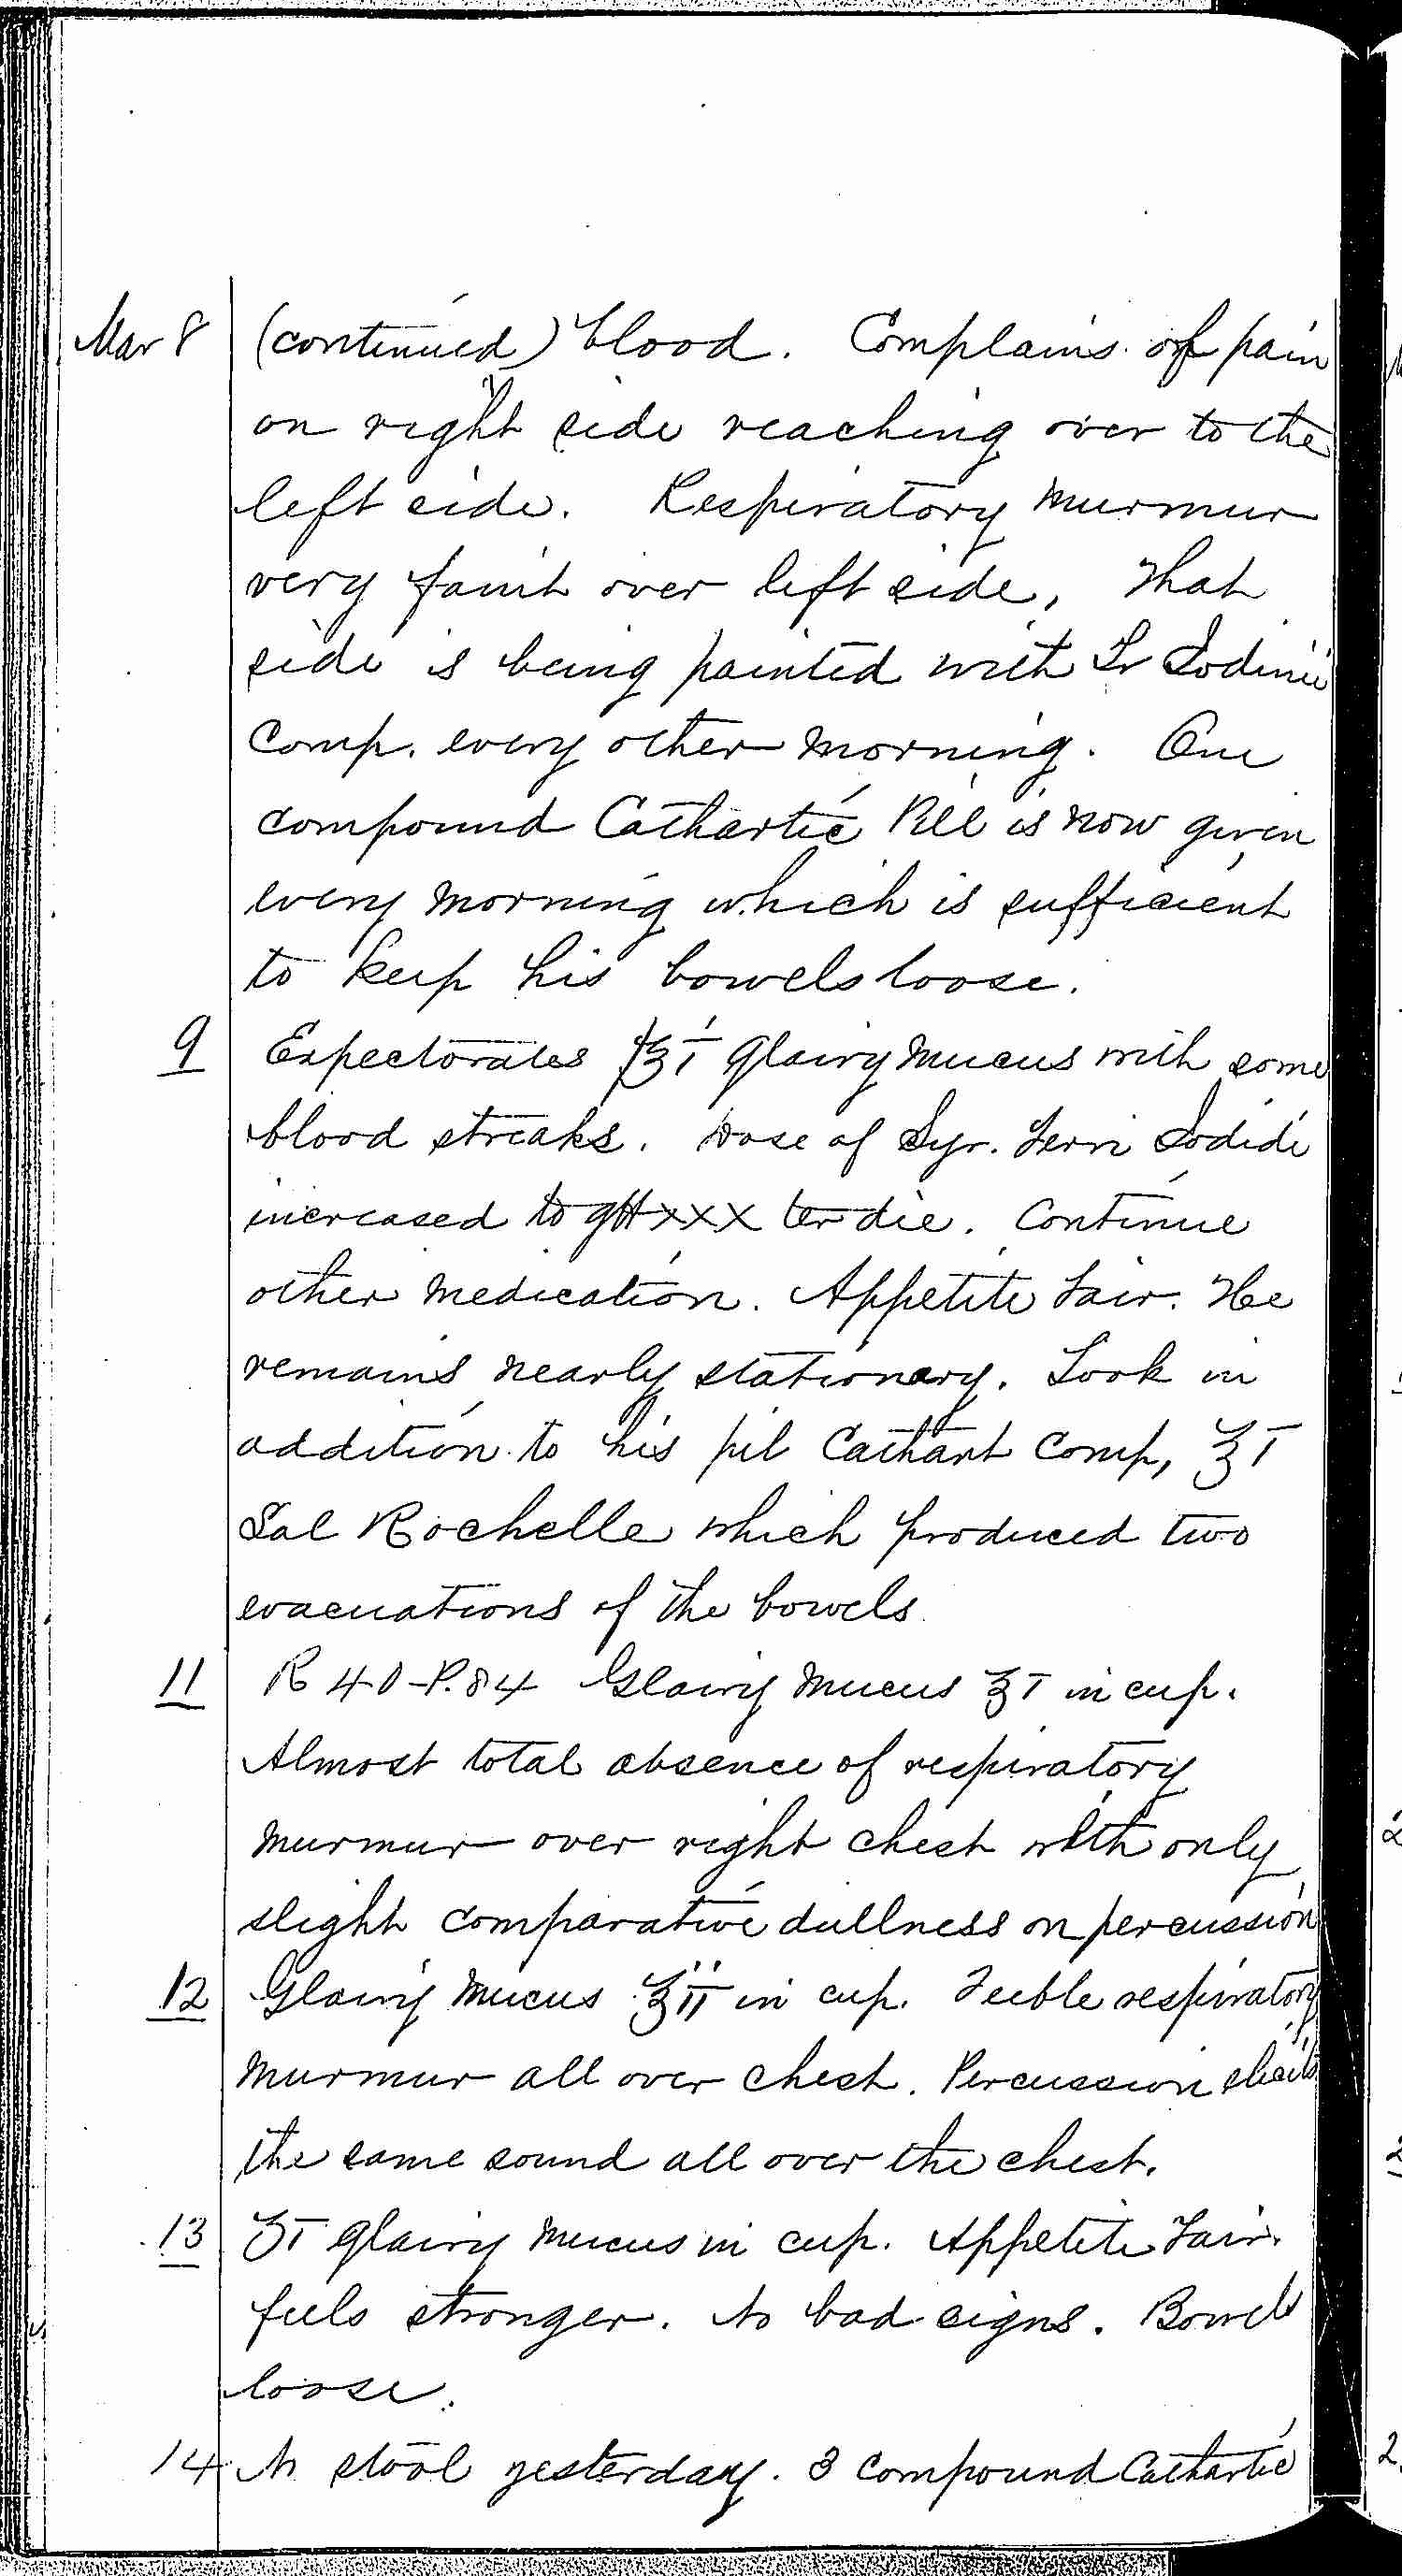 Mar 8 (continued) blood. Complains of pain
on right side reaching over to the
left side. Respiratory murmur
very faint over left side, that
side is being painted with Tr Iodinii
Comp. every other morning. One
compound Cathartic Pill is now given
every morning which is sufficient
to keep his bowels loose.
9 Expectorates ℥i glairy mucus with some
blood streaks. Dose of Syr. Ferri Iodidi
increased to gtt xxx ter die. Continue
other medication. Appetite Fair. He
remains nearly stationary. Took in
addition to his pil Cathart Comp, ℥i
Sal Rochelle which produced two
evacuations of the bowels
11 R 40-P.84 Glairy mucus ℥i in cup.
Almost total absence of respiratory
murmur over right chest with only
slight comparative dullness on percussion
12 Glairy mucus ℥ii in cup. Feeble respiratory
murmur all over chest. Percussion elicits
the same sound all over the chest.
13 ℥i glairy mucus in cup. Appetite Fair.
feels stronger. No bad signs. Bowels
loose.
14 No stool yesterday. 3 compound Cathartic